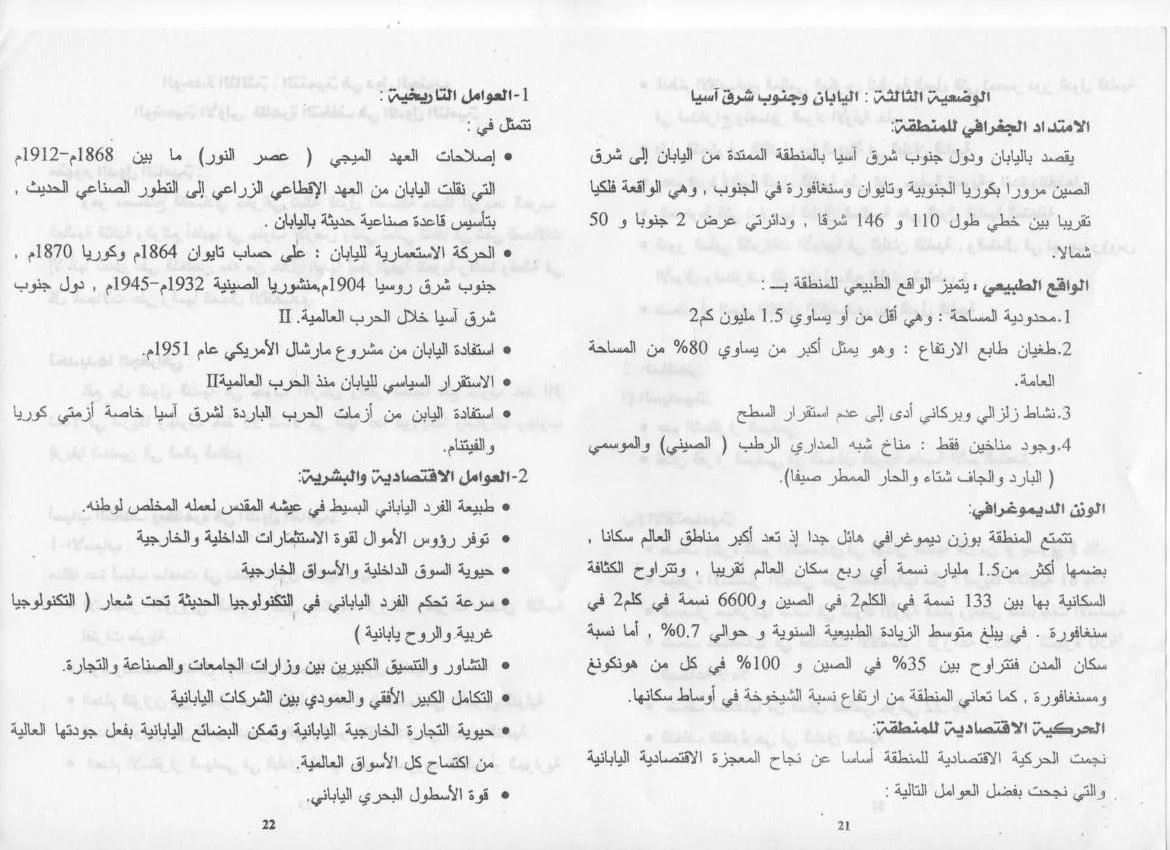 الوضعية الثالثة : اليابان وجنوب شرق آسيا
الامتداد الجغرافي للمنطقة:
يقصد باليابان ودول جنوب شرق آسيا بالمنطقة الممتدة من اليابان إلى شرق
الصين مرورا بكوريا الجنوبية وتايوان وسنغافورة في الجنوب , وهي الواقعة فلكيا
تقريبا بين خطي طول 110 و 146 شرقا , ودائرتي عرض 2 جنوبا و 50
شمالا.
الواقع الطبيعي : يتميز الواقع الطبيعي للمنطقة بـــ :
1.محدودية المساحة : وهي أقل من أو يساوي 1.5 مليون كم2
2.طغيان طابع الارتفاع : وهو يمثل أكبر من يساوي 80% من المساحة
العامة.
3.نشاط زلزالي وبركاني أدى إلى عدم استقرار السطح
4.وجود مناخين فقط : مناخ شبه المداري الرطب ( الصيني) والموسمي
( البارد والجاف شتاء والحار الممطر صيفا).
الوزن الديموغرافي:
تتمتع المنطقة بوزن ديموغرافي هائل جدا إذ تعد أكبر مناطق العالم سكانا ,
بضمها أكثر من1.5 مليار نسمة أي ربع سكان العالم تقريبا , وتتراوح الكثافة
السكانية بها بين 133 نسمة في الكلم2 في الصين و6600 نسمة في كلم2 في
سنغافورة . في يبلغ متوسط الزيادة الطبيعية السنوية و حوالي 0.7% , أما نسبة
سكان المدن فتتراوح بين 35% في الصين و 100% في كل من هونكونغ
ومسنغافورة , كما تعاني المنطقة من ارتفاع نسبة الشيخوخة في أوساط سكانها.
الحركية الاقتصادية للمنطقة:
نجمت الحركية الاقتصادية للمنطقة أساسا عن نجاح المعجزة الاقتصادية اليابانية
والتي نجحت بفضل العوامل التالية :
21
1-العوامل التاريخية :
تتمثل في :
• إصلاحات العهد الميجي ( عصر النور) ما بين 1868م–1912م
التي نقلت اليابان من العهد الإقطاعي الزراعي إلى التطور الصناعي الحديث ,
بتأسيس قاعدة صناعية حديثة باليابان .
• الحركة الاستعمارية لليابان : على حساب تايوان 1864م وكوريا 1870م ,
جنوب شرق روسيا 1904م,منشوريا الصينية 1932م–1945م , دول جنوب
شرق آسيا خلال الحرب العالمية. II
• استفادة اليابان من مشروع مارشال الأمريكي عام 1951م.
• الاستقرار السياسي لليابان منذ الحرب العالميةII
• استفادة اليابن من أزمات الحرب الباردة لشرق آسيا خاصة أزمتي كوريا
والفيتنام.
2-العوامل الاقتصادية والبشرية:
• طبيعة الفرد الياباني البسيط في عيشه المقدس لعمله المخلص لوطنه.
• توفر رؤوس الأموال لقوة الاستثمارات الداخلية والخارجية
• حيوية السوق الداخلية والأسواق الخارجية
• سرعة تحكم الفرد الياباني في التكنولوجيا الحديثة تحت شعار ( التكنولوجيا
غربية والروح يابانية )
• التشاور والتنسيق الكبيرين بين وزارات الجامعات والصناعة والتجارة.
• التكامل الكبير الأفقي والعمودي بين الشركات اليابانية
• حيوية التجارة الخارجية اليابانية وتمكن البضائع اليابانية بفعل جودتها العالية
من اكتساح كل الأسواق العالمية.
• قوة الأسطول البحري الياباني.
22